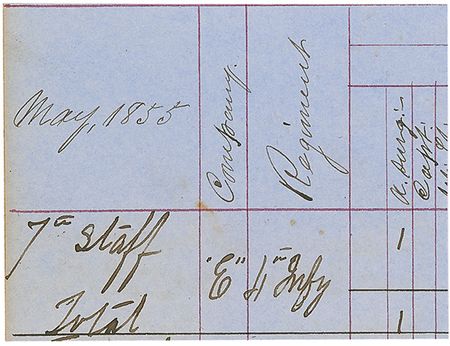 May, 1855
Company.
Regiment
A. Surg:
Capt:
7th Staff
"E" 4th Infy
1
Total
1